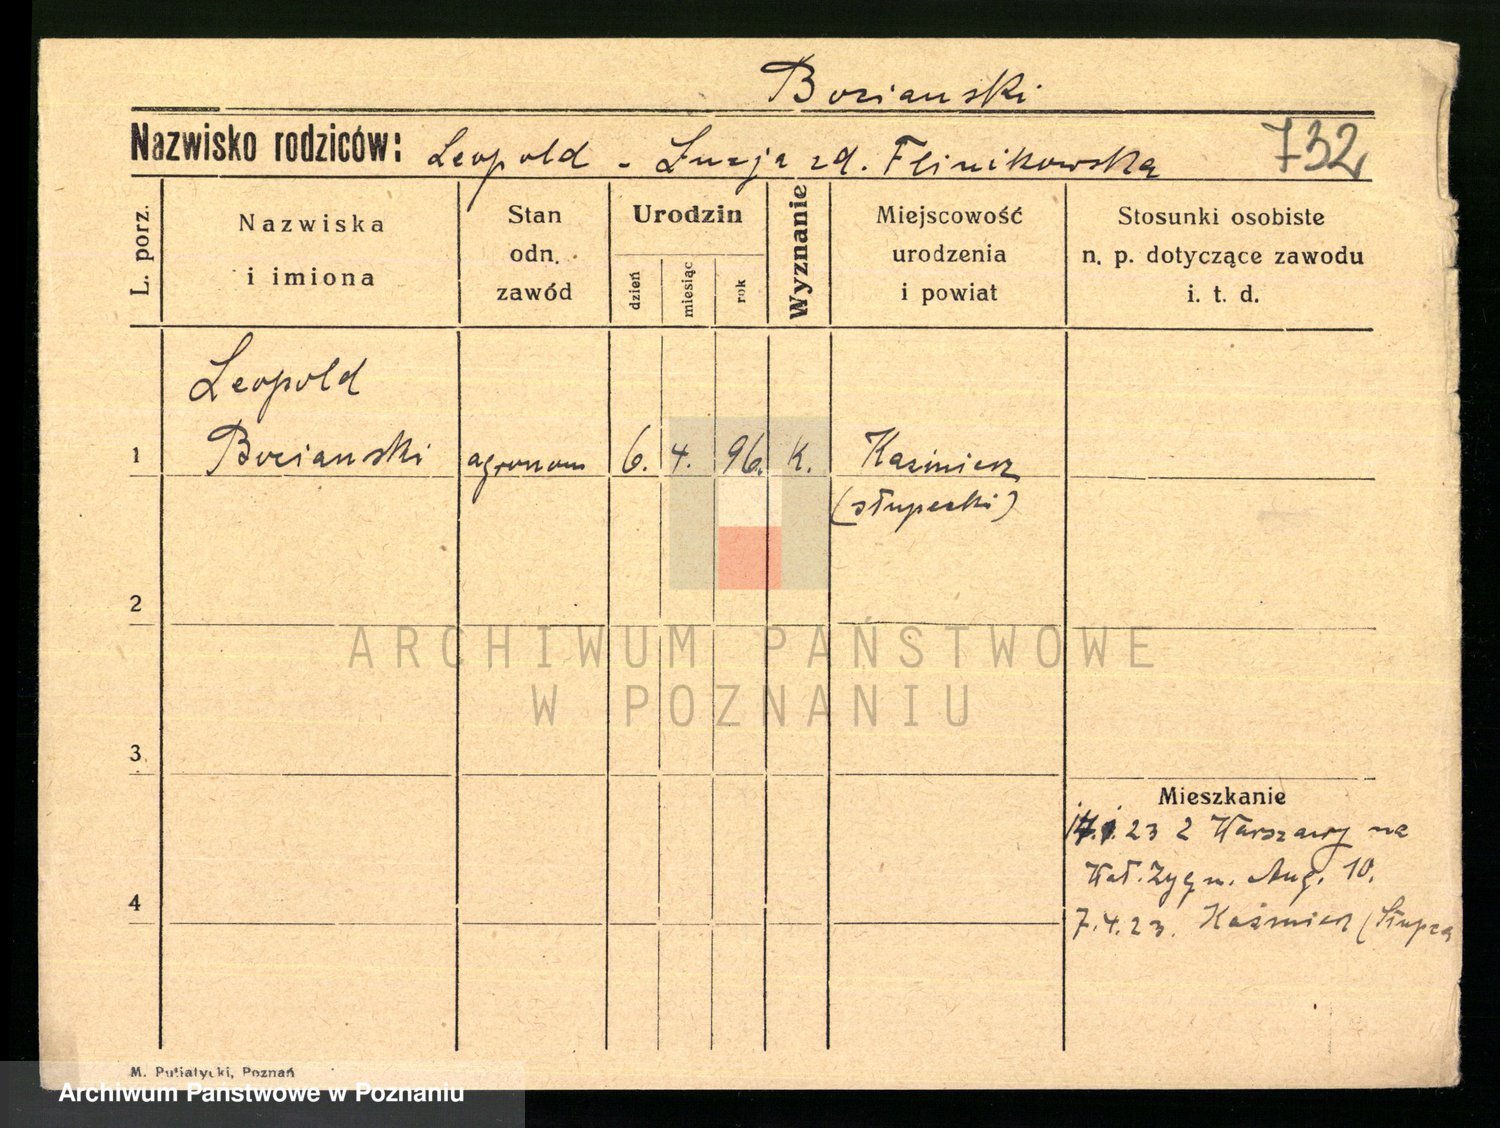 Bocianski
Nazwisko rodziców: Leopold - Łucja zd. Flinikowska 732
L. porz.
Nazwiska
i imiona
Stan
odn.
zawód
Urodzin
dzień
miesiąc
rok
Wyznanie
Miejscowość
urodzenia
i powiat
Stosunki osobiste
n. p. dotyczące zawodu
i. t. d.
Leopold
1 Bocianski agronom 6. 4. 96. K. Kazimierz
(słupecki)
2
3
Mieszkanie
23 z Warszawy na
Wał. Zygm. Aug. 10.
4
7.4.23. Kaźmierz (Słupca
M. Putiatycki, Poznań
ARCHIWUM PAŃSTWOWE
W POZNANIU
Archiwum Państwowe w Poznaniu